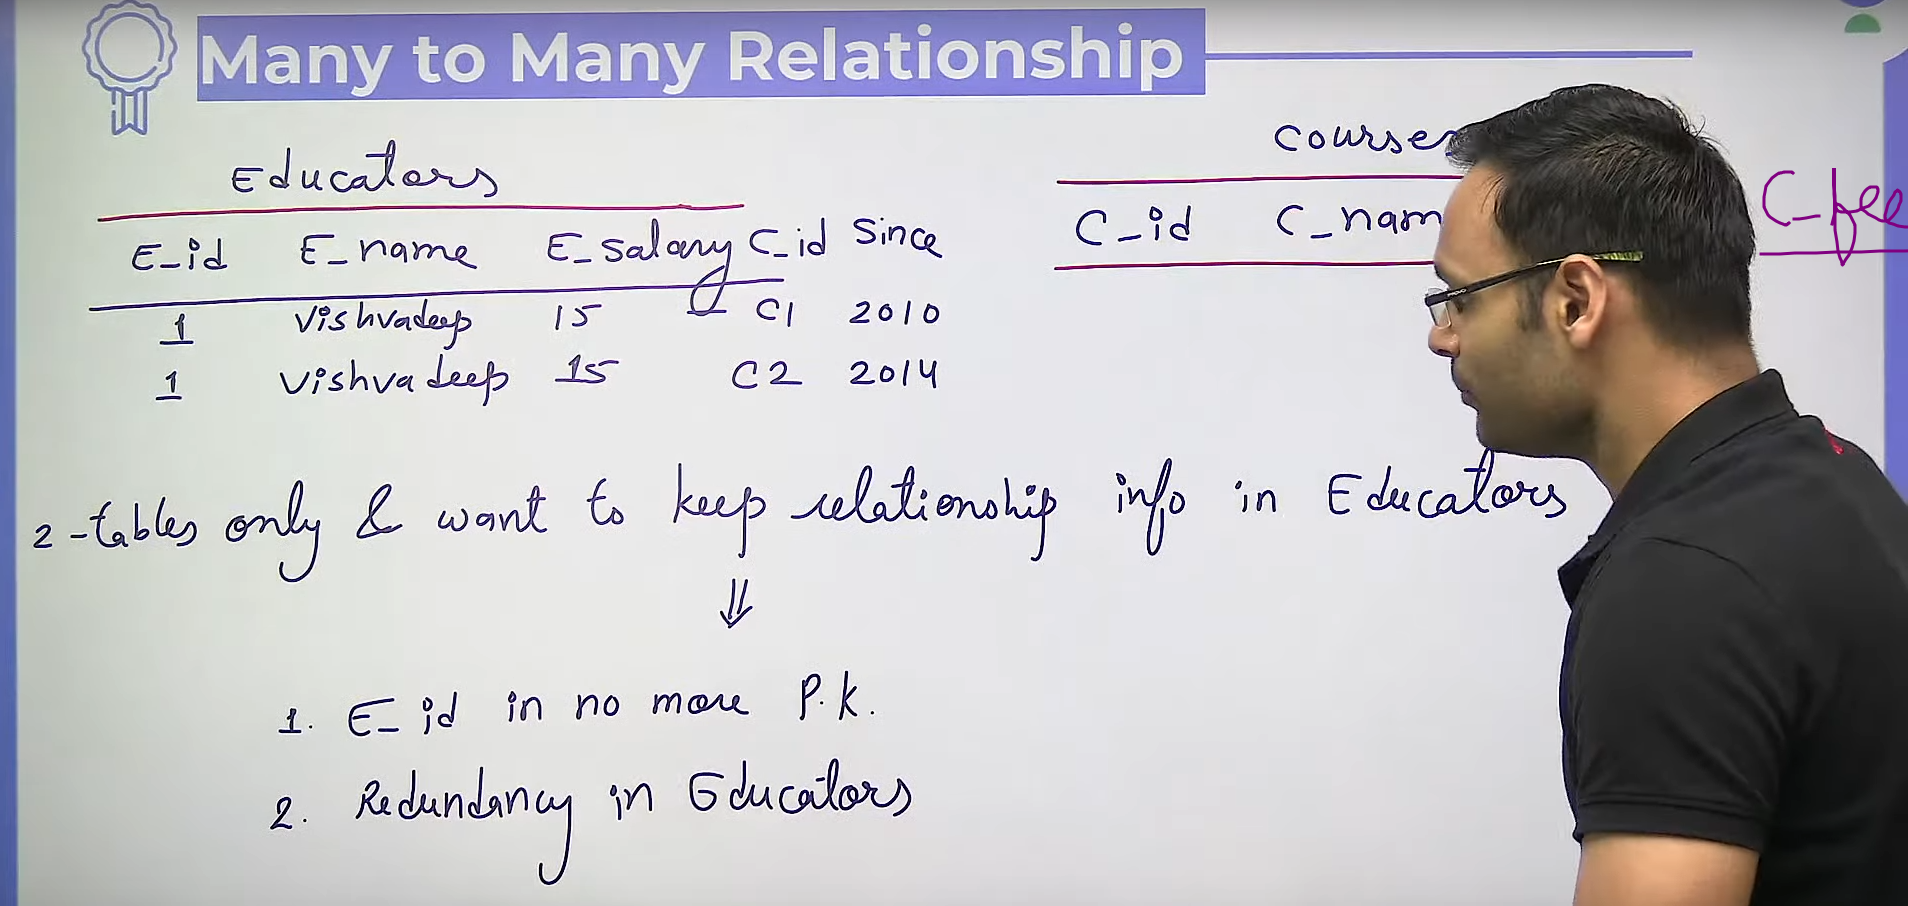 Many to Many Relationship
Educators
E_id E_name E_salary C_id Since
1 Vishvadeep 15 C1 2010
1 Vishvadeep 15 C2 2014
Courses
C_id C_nam C_fee
2-tables only & want to keep relationship info in Educators
⇓
1. E_id in no more P.K.
2. Redundancy in Educators